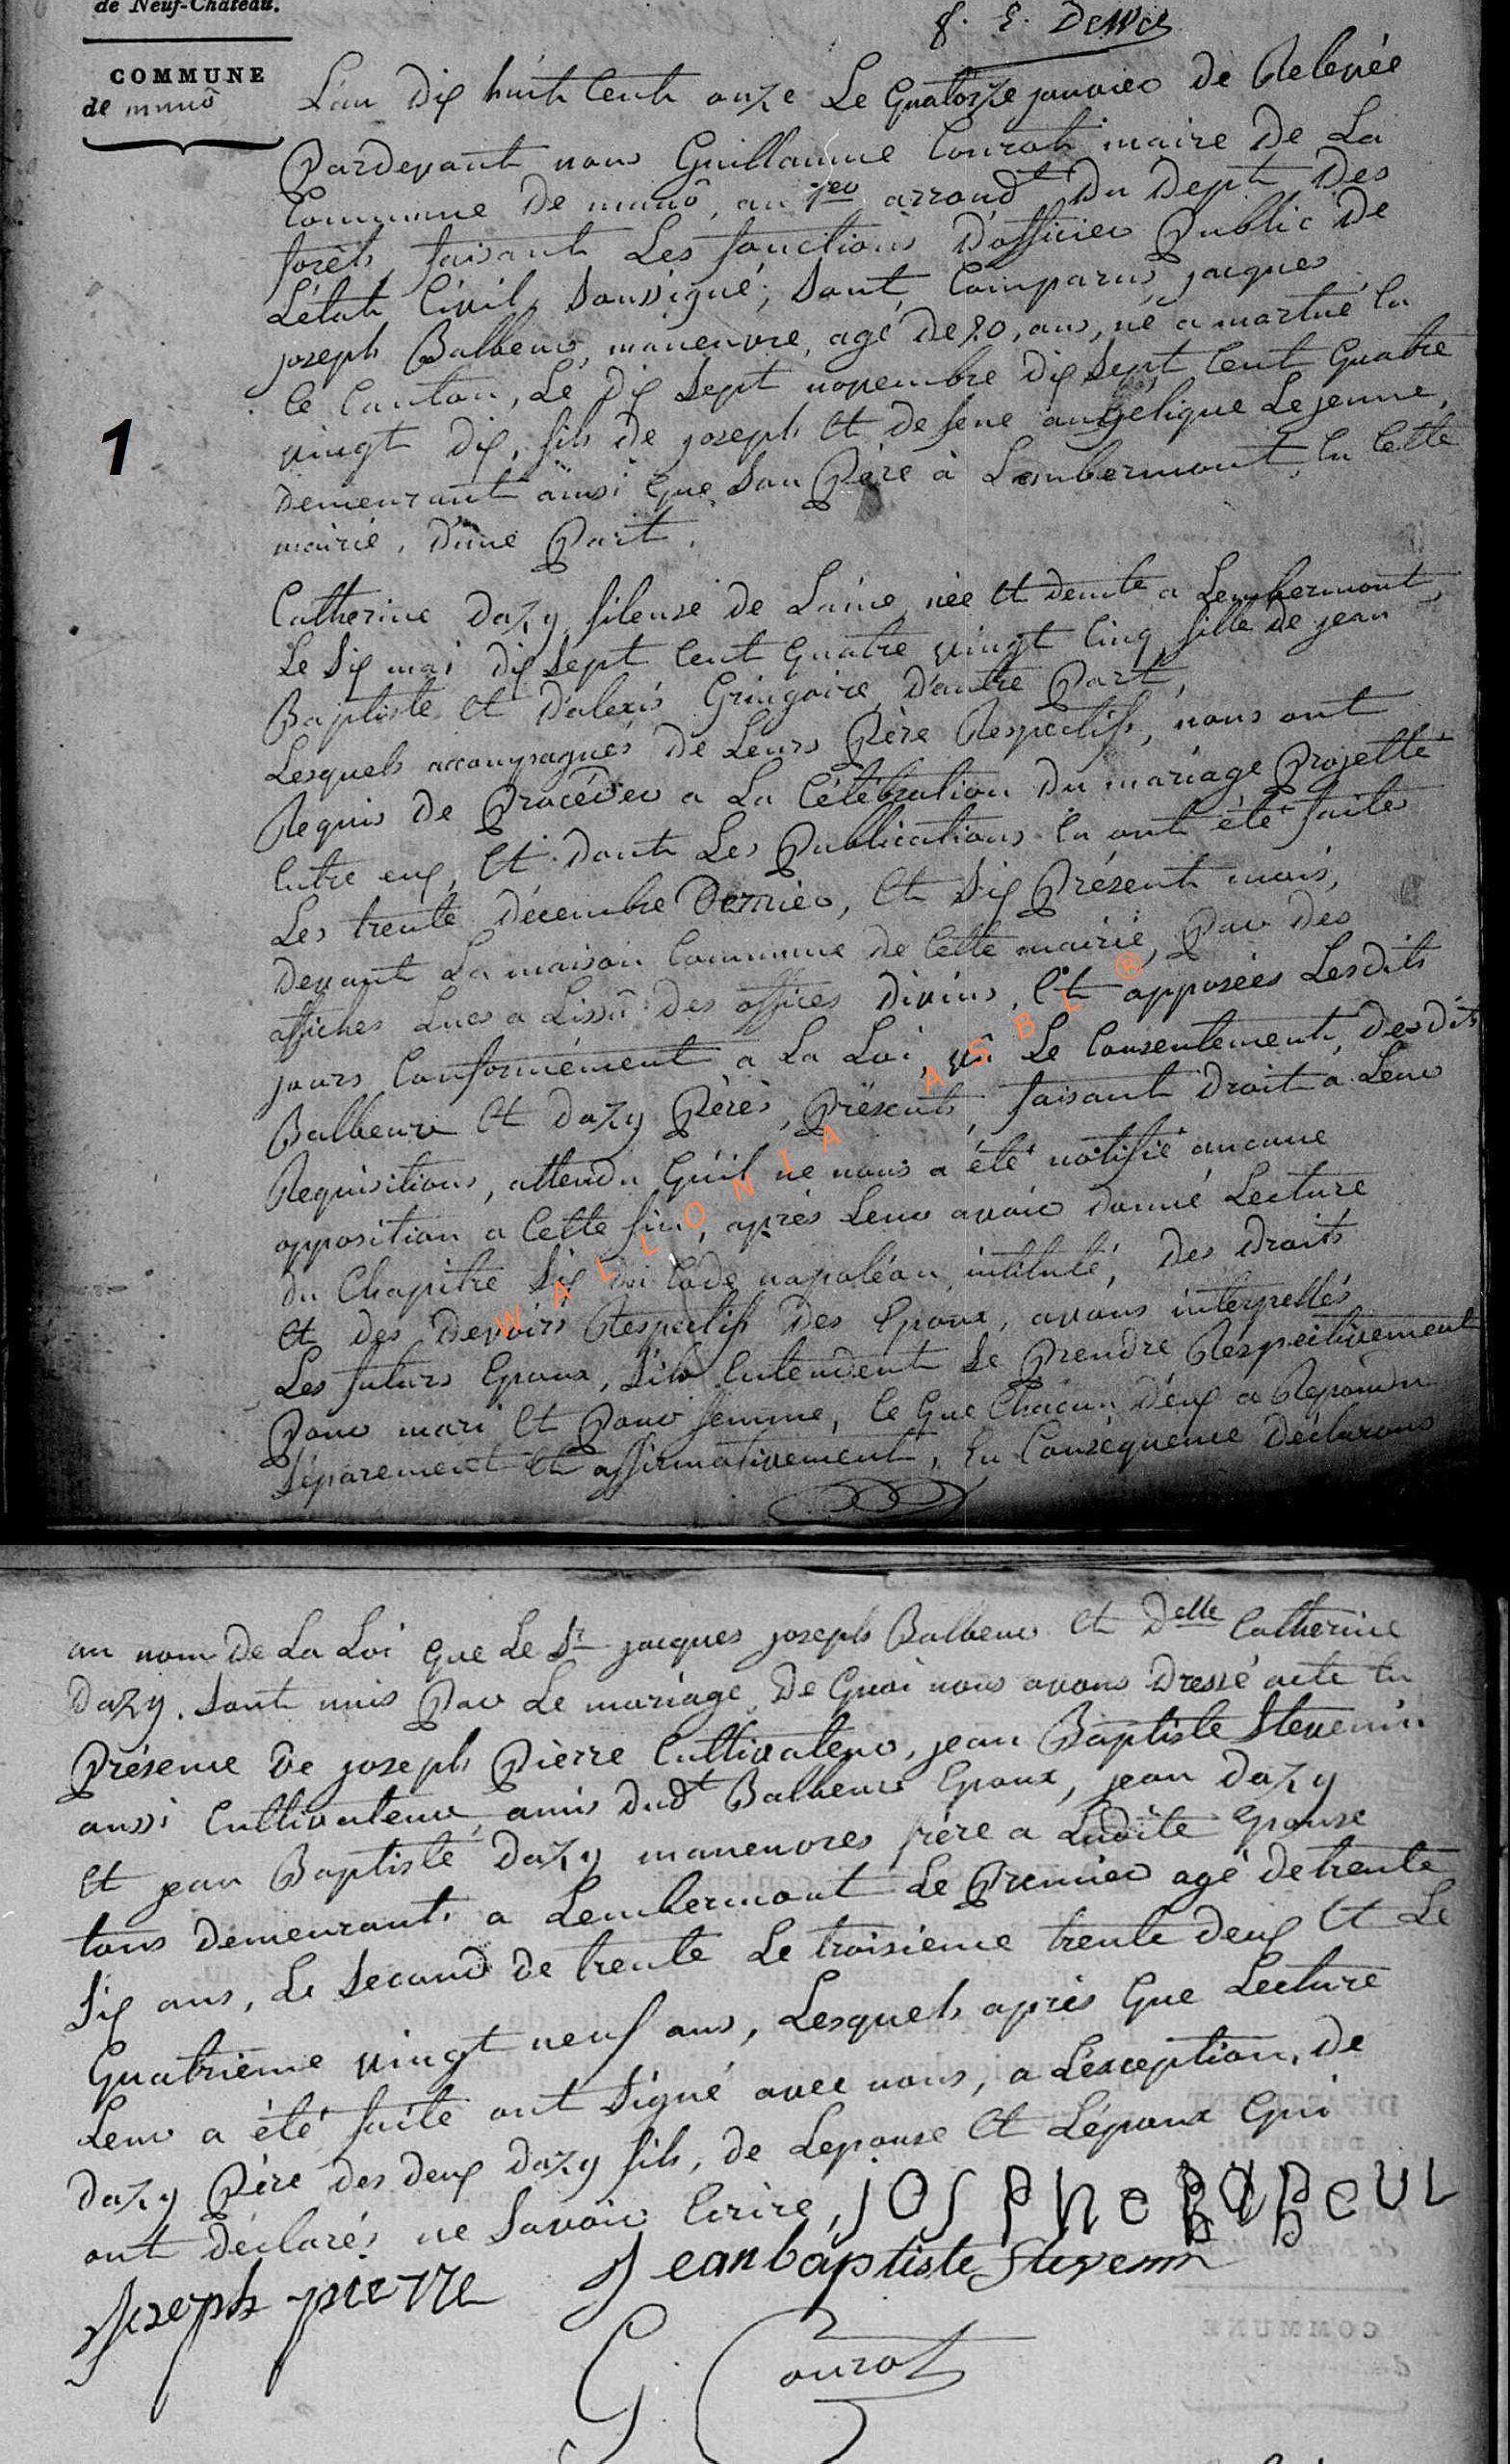 de Neuf-Château.
f. E. Dewez
COMMUNE
de muno
L'an dix huit cent onze Le Quatorze janvier de Relevée
Pardevant nous Guillaume Courot maire de La
Commune De muno, au 1er arrondt Du Dept Des
forêts, faisant Les fonctions D'officier Public De
L'état Civil, Soussigné, Sont Comparus jacques
joseph Balbeur, maneuvre, agé De 20, ans, né a martué En
Ce Canton, Le dix Sept novembre dix Sept Cent Quatre
vingt dix, fils de joseph Et de feue angélique Lejeune,
Demeurant ainsi Que Son Père à Lambermont, En Cette
mairie, D'une Part.
1
Catherine Dazy fileuse de Laine née Et demte a Lembermont,
Le Six mai dix Sept Cent Quatre vingt Cinq, fille de jean
Baptiste Et D'alexis Gringoire, D'autre Part,
Lesquels accompagnés de Leurs Père Respectifs, nous ont
Requis de Procéder a La Célébration Du mariage Projetté
Entre eux, Et Dont Les Publications En ont été faites
Les trente décembre Dernier, Et Six Présent mois,
Devant La maison Commune de Cette mairie, Par Des
affiches Lues a Lissû Des offices Divins, Et apposées Lesdits
jours Conformément a La Loi, vu Le Consentement, desdits
Balbeur Et Dazy Pères, Présents, faisant Droit a Leur
Requisitions, attendu Qu'il ne nous a été notifié aucune
opposition a Cette fin, après Leur avoir donné Lecture
du Chapitre Six du Code napoléon, intitulé, Des Droits
Et des Devoirs Respectifs Des Epoux, avons interpellés
Les futurs Epoux, S'ils Entendent Se Prendre Respectivement
Pour mari Et Pour femme, Ce Que Chacun D'eux a Repondu
Séparement Et affirmativement, En Conséquence Déclarons
WALLONIA ASBL ®
au nom De La Loi Que Le Sr jacques joseph Balbeur Et Delle Catherine
Dazy. Sont unis Par Le mariage, De Quoi nous avons Dressé acte En
Présence De joseph Pierre Cultivateur, jean Baptiste Stevenin
aussi Cultivateur, amis dudt Balbeur Epoux, jean Dazy
Et jean Baptiste Dazy maneuvres frère a Ladite Epouse
tous Demeurants a Lembermont Le Premier agé de trente
Six ans, Le Second de trente Le troisieme trente deux Et Le
Quatrième vingt neuf ans, Lesquels après Que Lecture
Leur a été faite ont Signé avec nous, a L'exception, de
Dazy Père des deux Dazy fils, de Lepouse Et Lépoux Qui
ont déclarés ne Savoir Ecrire,
joseph pierre
Jean baptiste Stevenin
G. Courot
COMMUNE